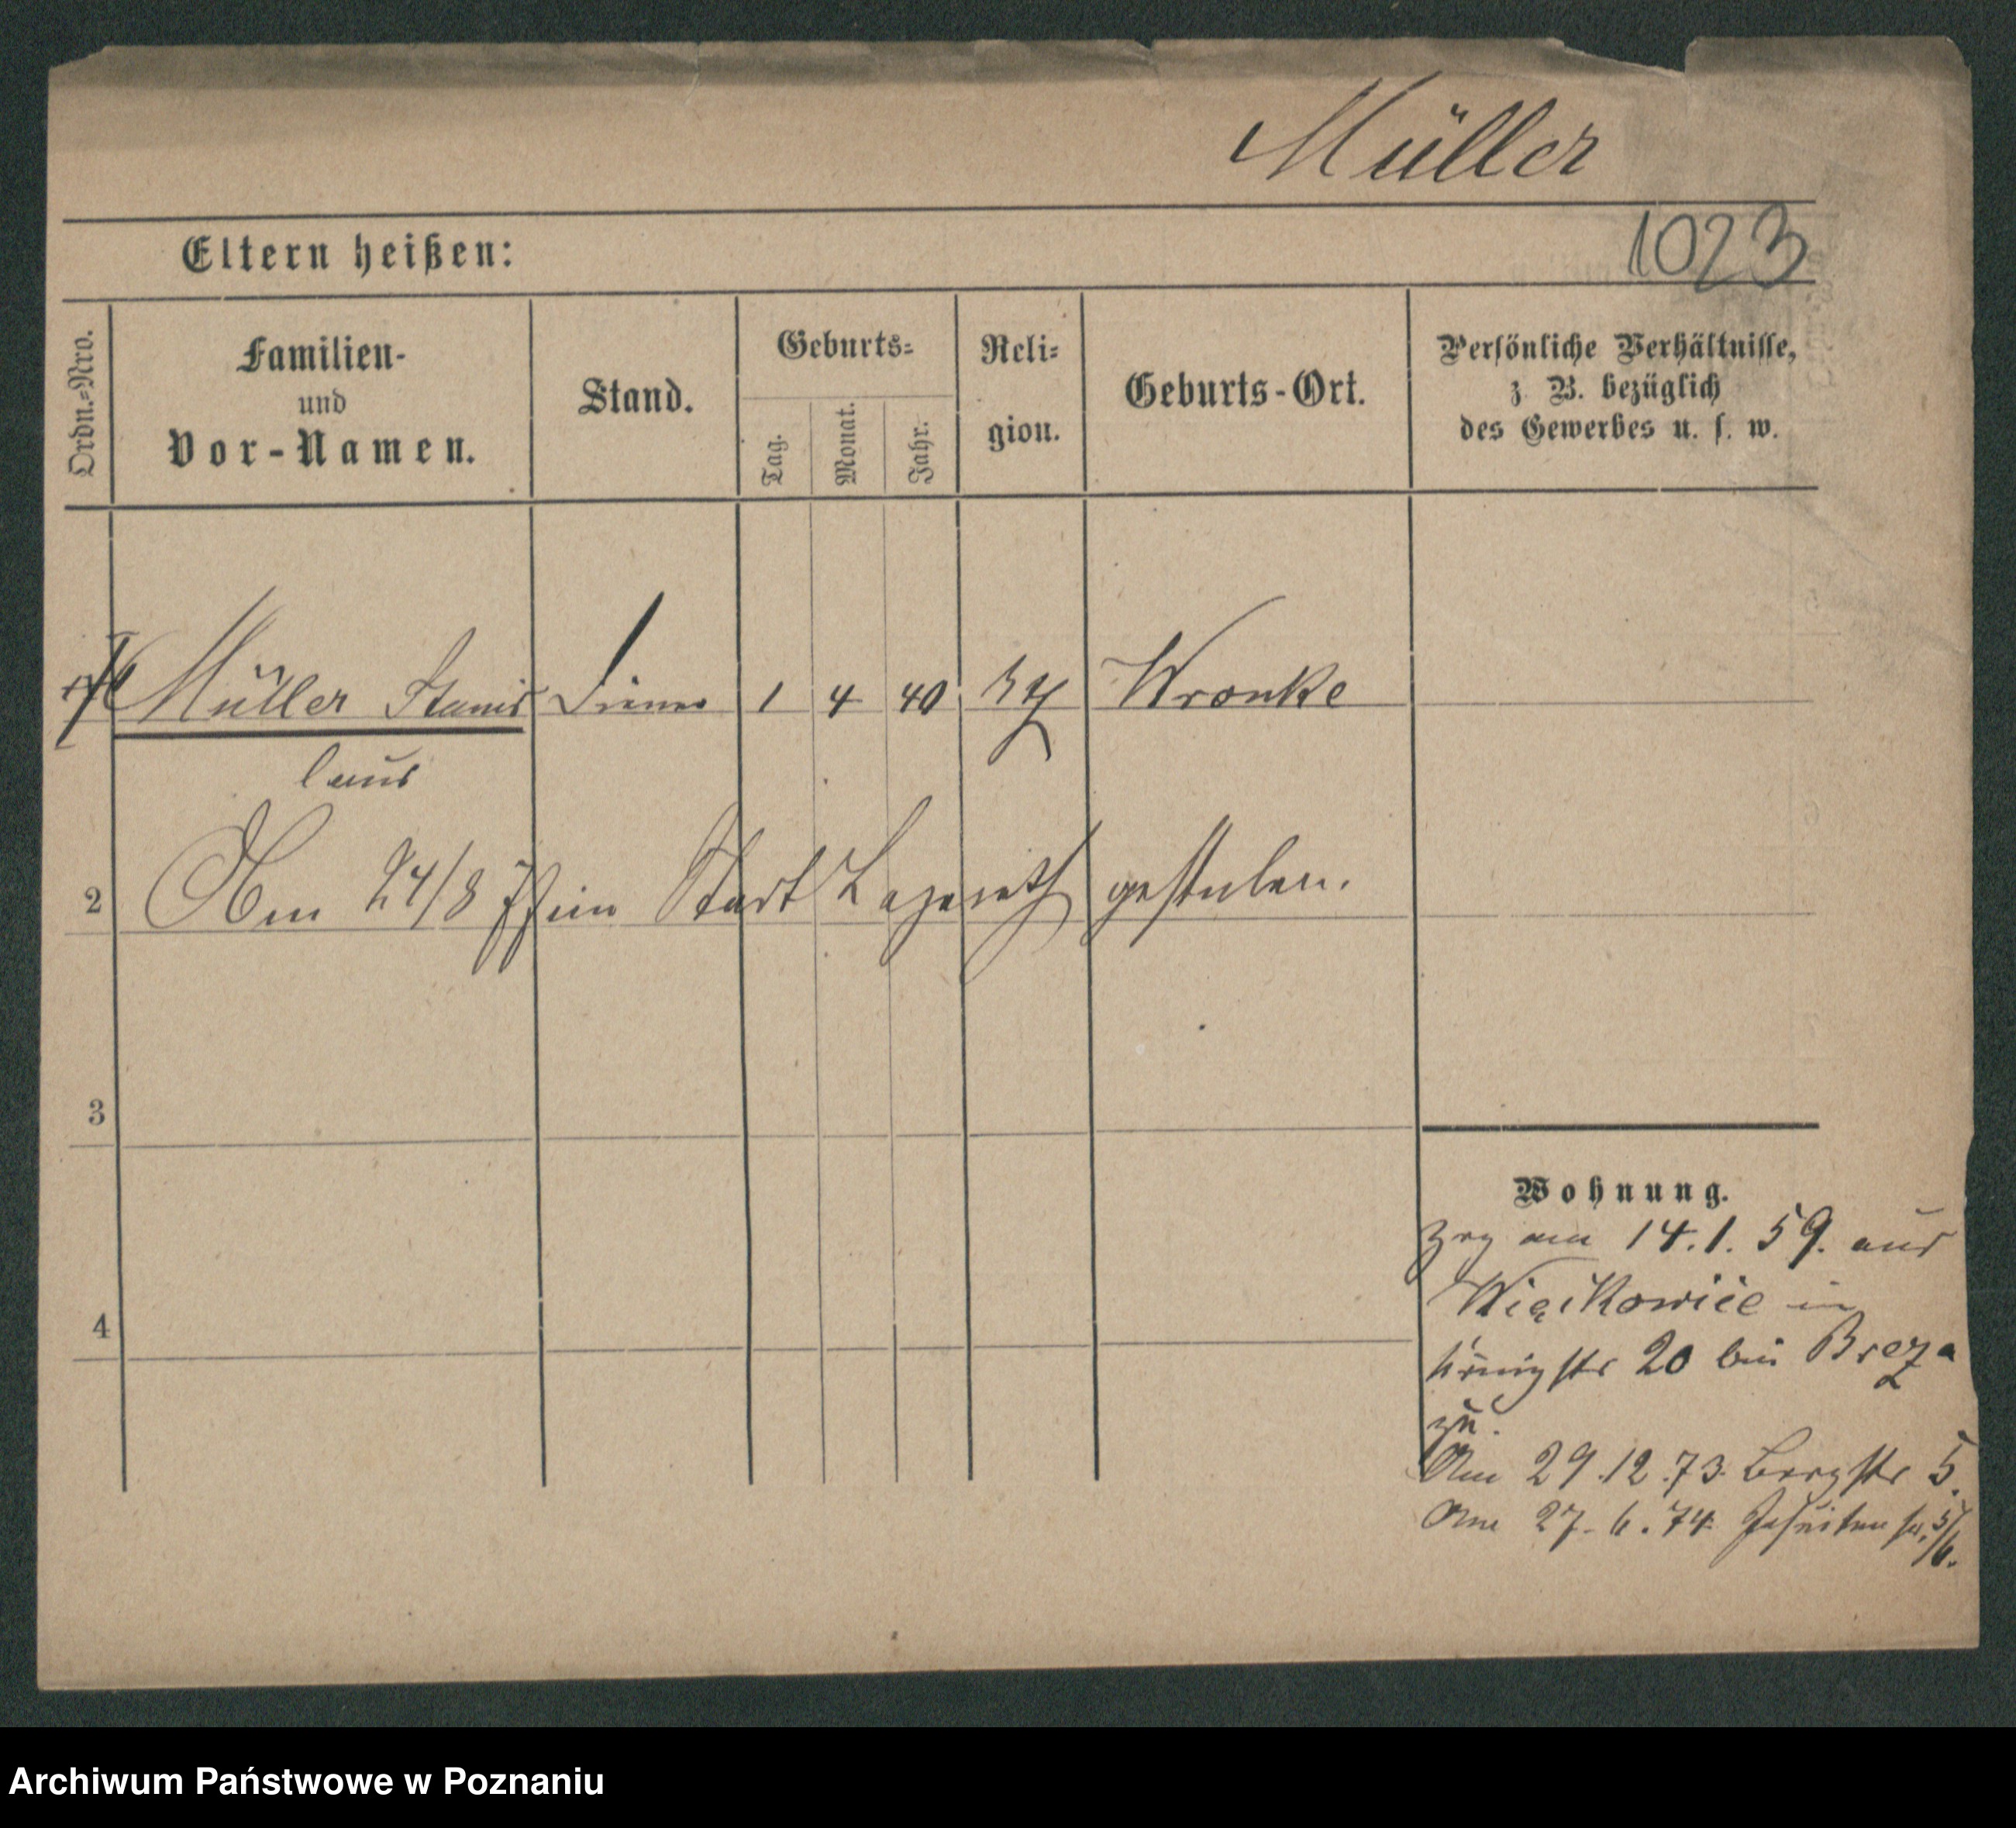 Müller
1023
Eltern heißen:
Ordn.=Nro.
Familien-
und
Vor-Namen.
Stand.
Geburts=
Tag.
Monat.
Jahr.
Reli=
gion.
Geburts-Ort.
Persönliche Verhältnisse,
z. B. bezüglich
des Gewerbes u. s. w.
Müller Stanis Diener 1 4 40 Wronke
laus
2 Am 24/8 im Stadt Lazareth gestorben.
3
4
Wohnung.
Zog am 14.1.59. aus
in
Königstr 20 bei Breza
zu.
Am 29.12.73. Bergstr 5.
Am 27.6.74. Jesuitenstr. 5/6.
Archiwum Państwowe w Poznaniu